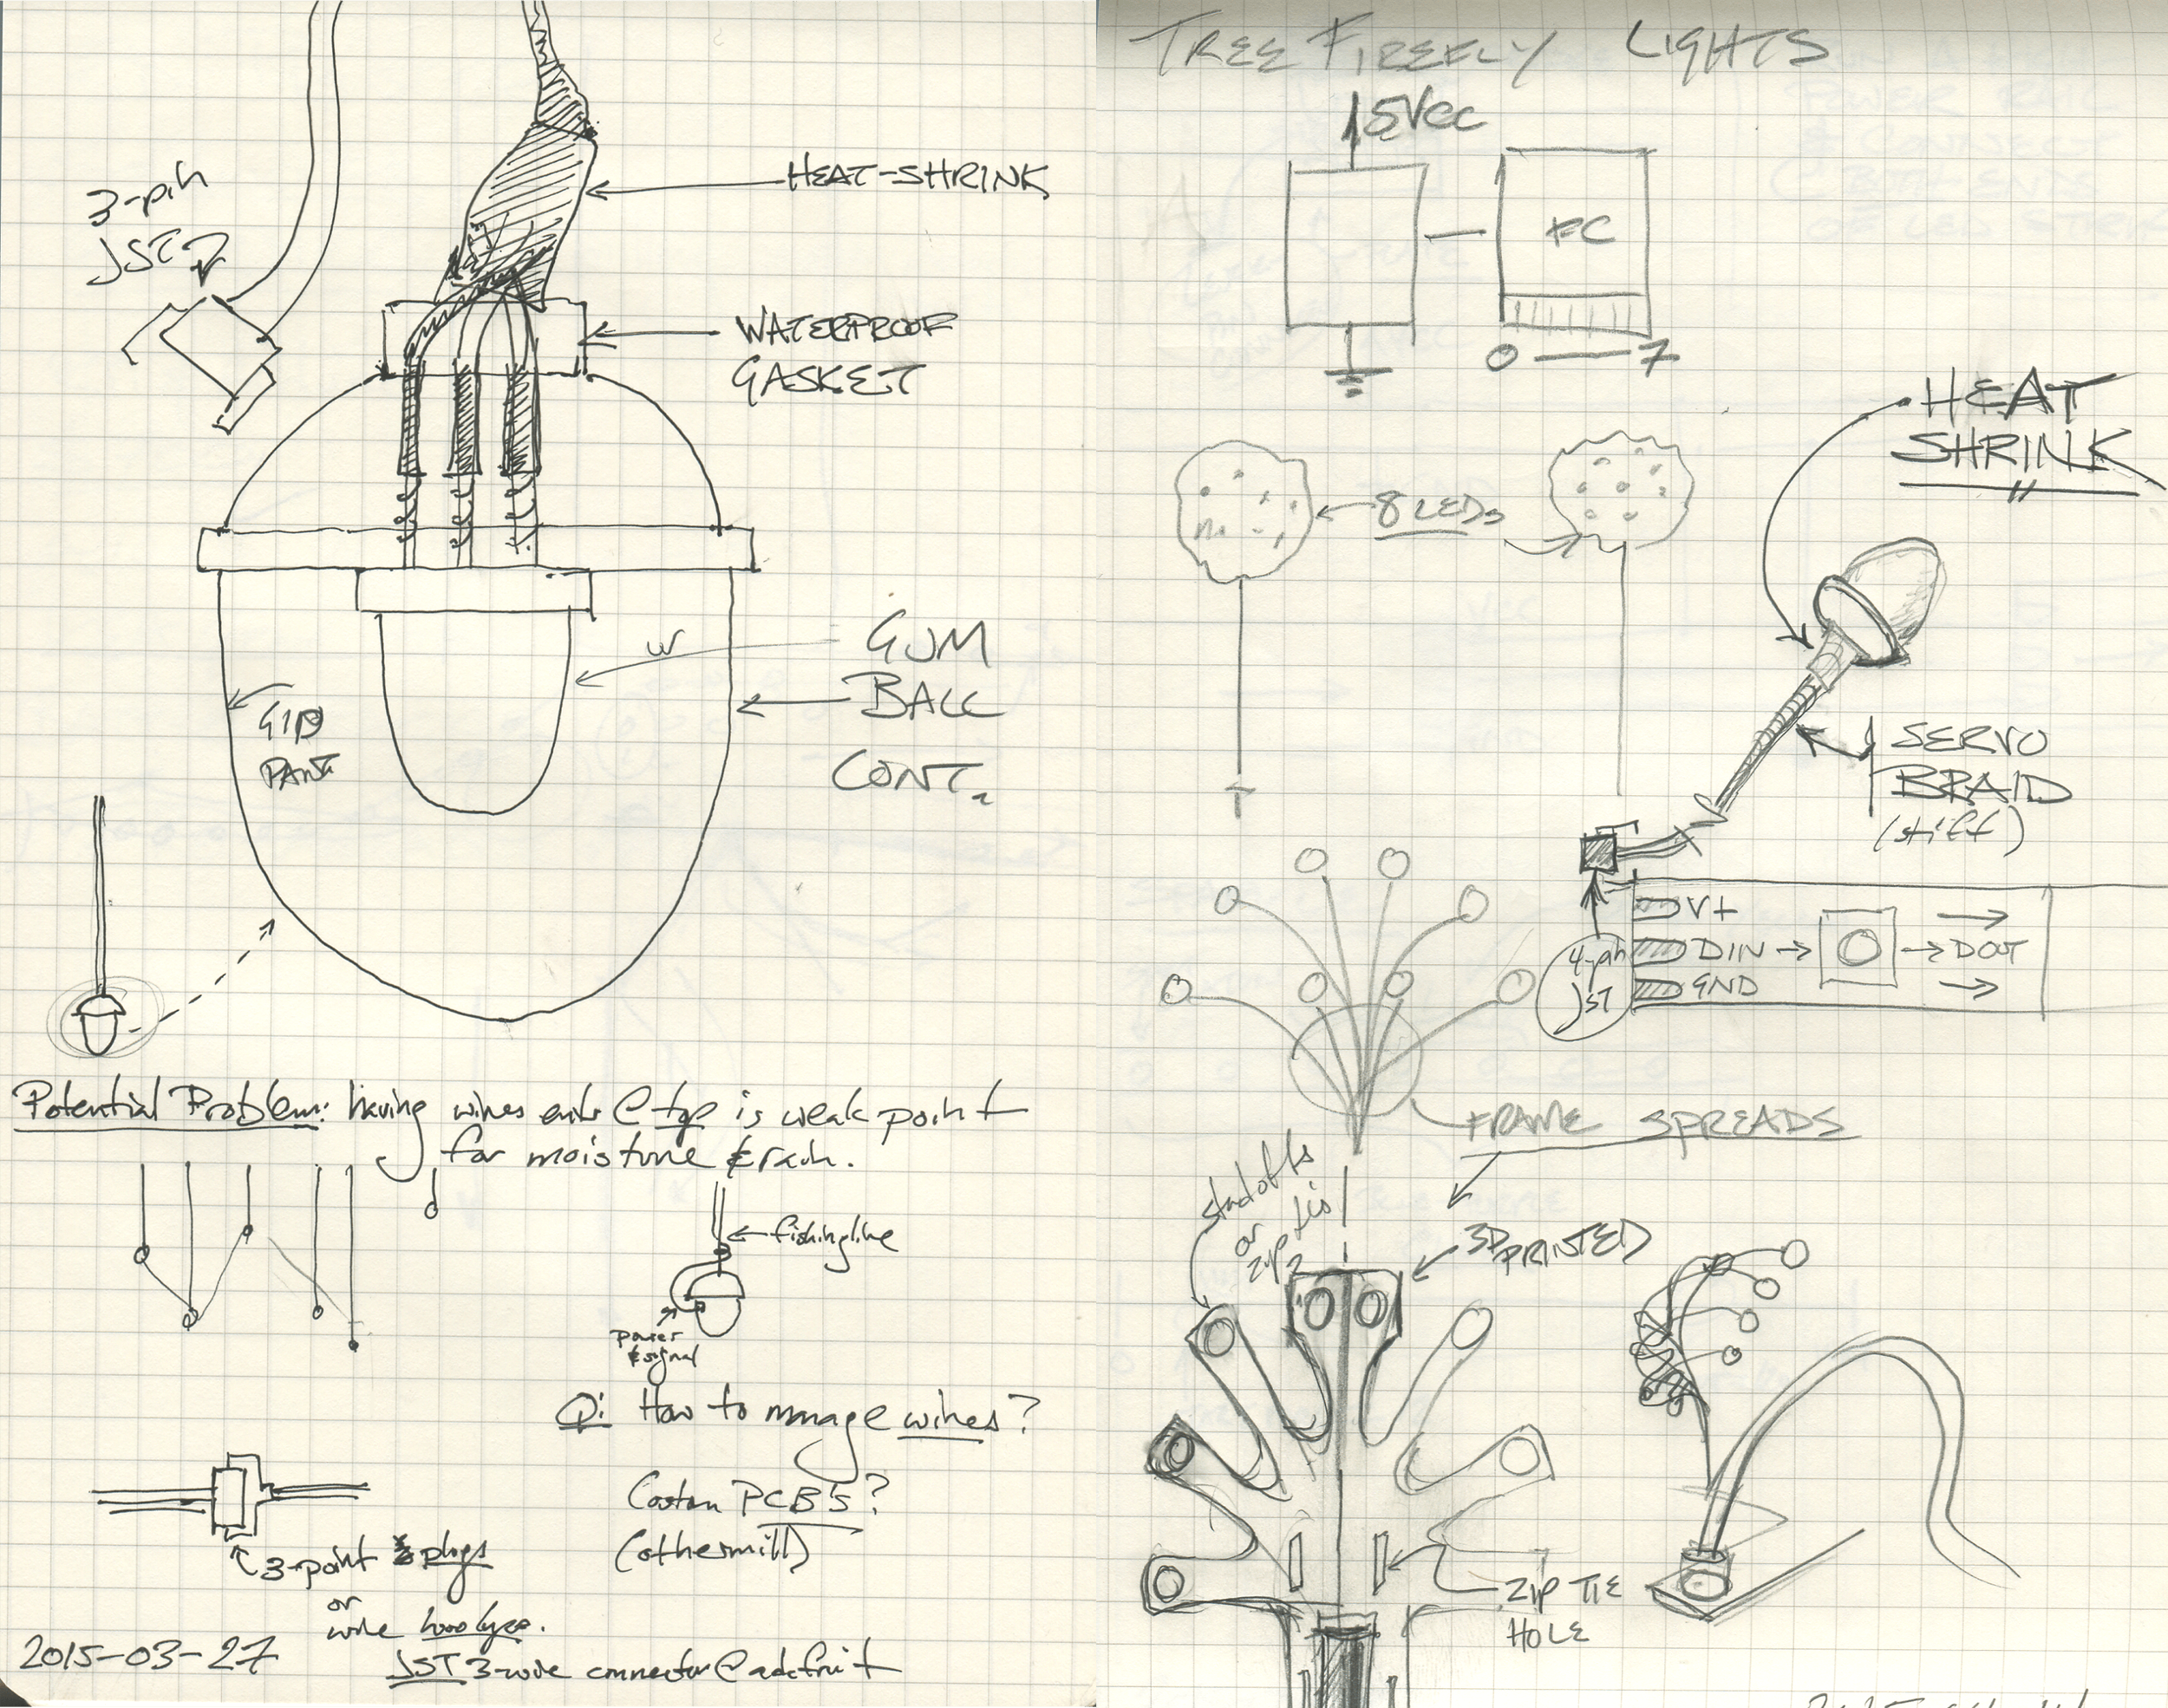 3-pin
JST
HEAT-SHRINK
WATERPROOF
GASKET
GUM
BALL
CONT.
Potential Problem: having wires enter @ top is weak point
for moisture & rain.
fishing line
power
& signal
Q: How to manage wires?
Custom PCB's?
(othermill)
3-point plugs
or
wire
JST 3-wire connector @ adafruit
2015-03-27
TREE FIREFLY LIGHTS
5VCC
FC
0 — 7
HEAT
SHRINK
8 LEDs
SERVO
BRAID
(stiff)
4-pin
JST
V+
DIN → → DOUT
GND
FRAME SPREADS
standoffs
or
zip ties
3D PRINTED
ZIP TIE
HOLE